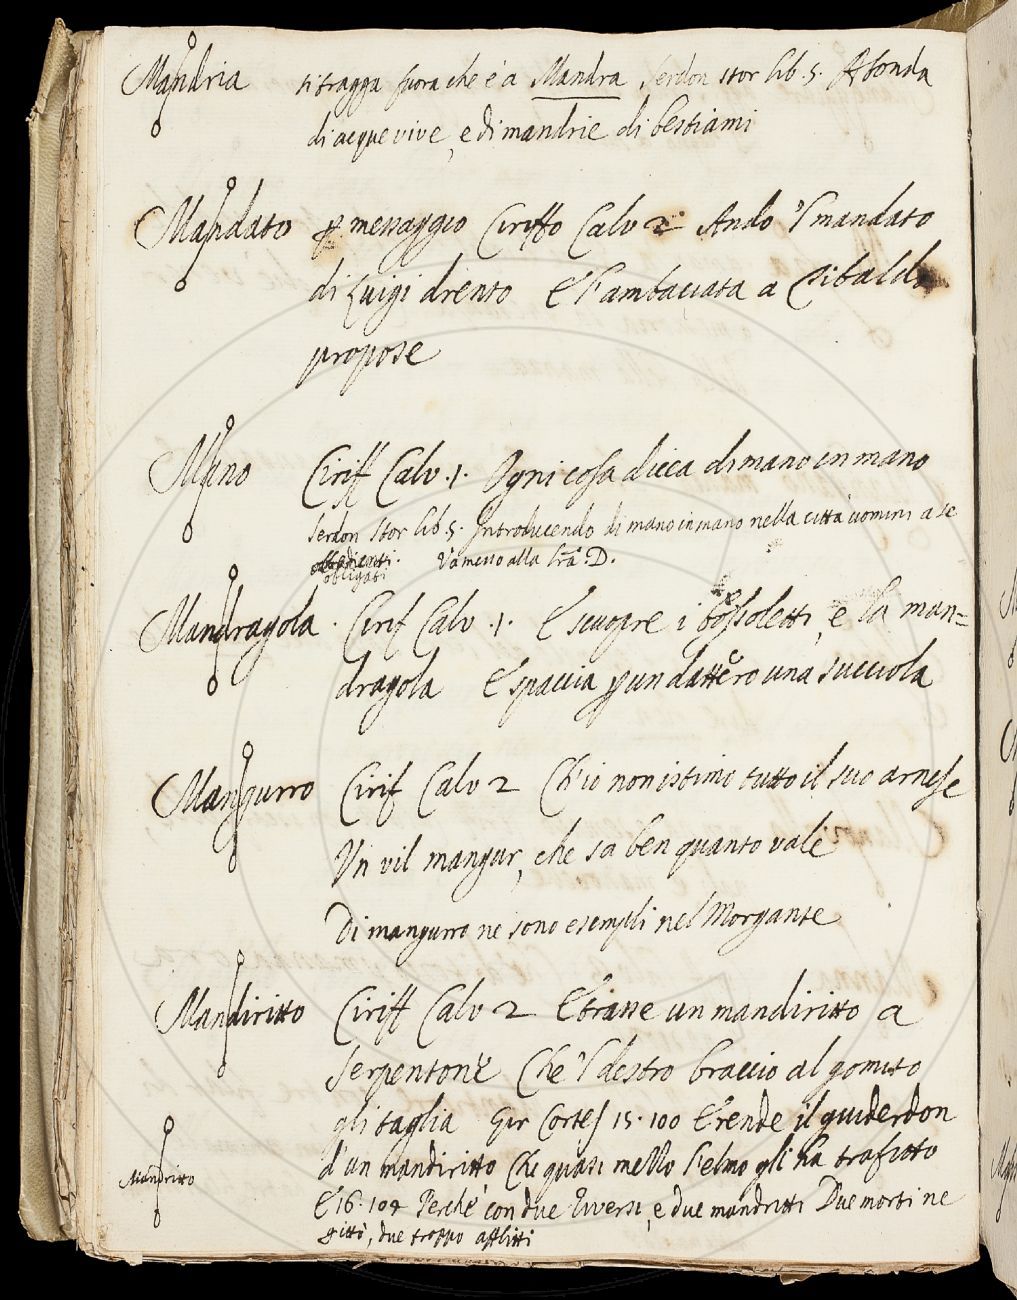 Mandria si tragga fuora che è a Mandra, Serdon stor lib. 5. Abonda
di acque vive, e di mandrie di bestiami
Mandato p messaggio Ciriffo Calv 2 Ando 'l mandato
di Luigi drento E l'ambasciata a Tibaldo
propose
Mano Ciriff Calv. 1. Ogni cosa dicea di mano in mano
Serdon stor lib 5. Introducendo di mano in mano nella città uomini a se
obbligati. V'a messo alla lrã: D.
Mandragola. Cirif Calv. 1. E scuopre i bossoletti, e la man=
dragola E spaccia p un dattero una succiola
Mangurro Cirif Calv 2 Ch'io non istimo tutto il suo arnese
Un vil mangur, che sa ben quanto vale
Di mangurro ne sono esempli nel Morgante
Mandiritto Ciriff Calv 2 E trasse un mandiritto a
Serpentone Che 'l destro braccio al gomito
gli taglia Gir Cortes 15. 100 E rende il guiderdon
Mandritto d'un mandiritto Che quasi mezzo l'elmo gli ha trafitto
E 16. 104 Perché con due riversi, e due mandritti Due morti ne
gittò, due troppo afflitti